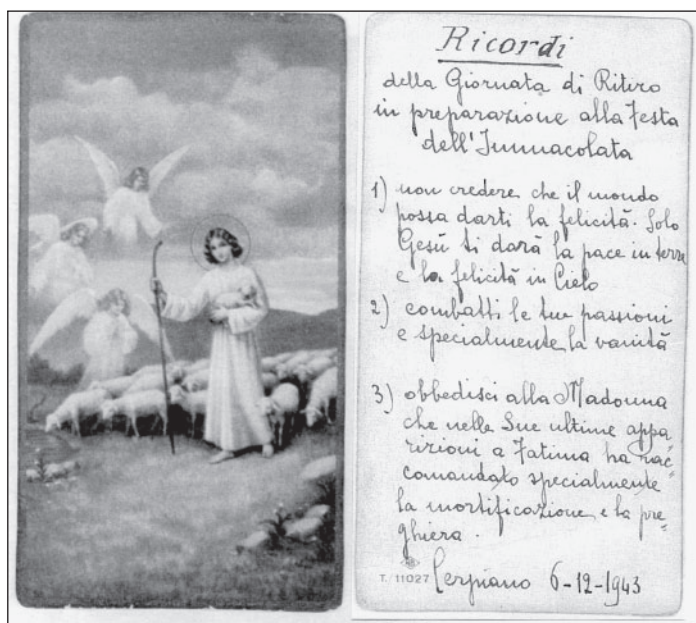 Ricordi
della Giornata di Ritiro
in preparazione alla Festa
dell'Immacolata
1) non credere che il mondo
possa darti la felicità. Solo
Gesù ti darà la pace in terra
e la felicità in Cielo
2) combatti le tue passioni
e specialmente la vanità
3) obbedisci alla Madonna
che nelle Sue ultime appa-
rizioni a Fatima ha rac-
comandato specialmente
la mortificazione e la pre-
ghiera.
T. 11027 Cerpiano 6-12-1943